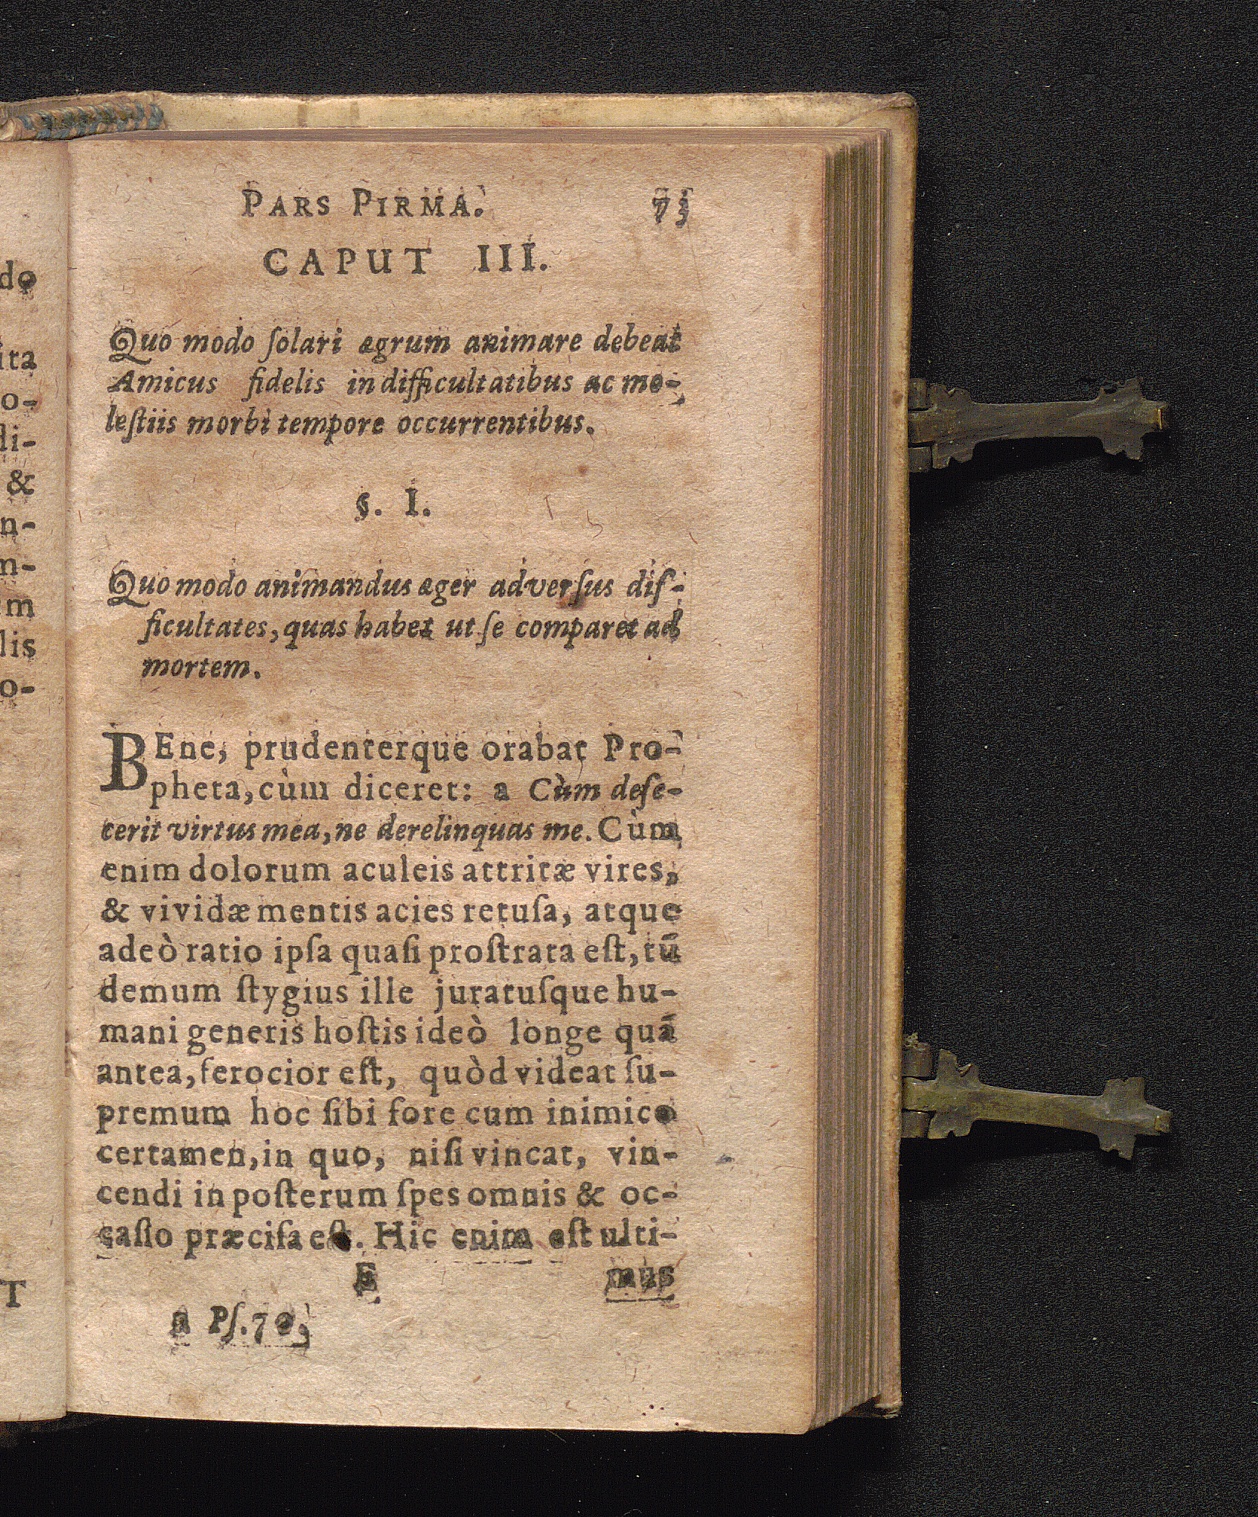 do
ita
o-
di-
&
n-
m-
m
lis
o-
T
PARS PIRMA.
73
CAPUT III.
Quo modo ſolari ægrum animare debeat
Amicus fidelis in difficultatibus ac mo-
leſtiis morbi tempore occurrentibus.
§. I.
Quo modo animandus æger adverſus dif-
ficultates, quas habet ut ſe comparet ad
mortem.
BEne, prudenterque orabat Pro-
pheta, cùm diceret: a Cùm defe-
cerit virtus mea, ne derelinquas me. Cùm
enim dolorum aculeis attritæ vires,
& vividæ mentis acies retuſa, atque
adeò ratio ipſa quaſi proſtrata eſt, tũ
demum ſtygius ille juratuſque hu-
mani generis hoſtis ideò longe quã
antea, ferocior eſt, quòd videat ſu-
premum hoc ſibi fore cum inimico
certamen, in quo, niſi vincat, vin-
cendi in poſterum ſpes omnis & oc-
caſio præciſa eſt. Hic enim eſt ulti-
E
mus
a Pſ. 70.